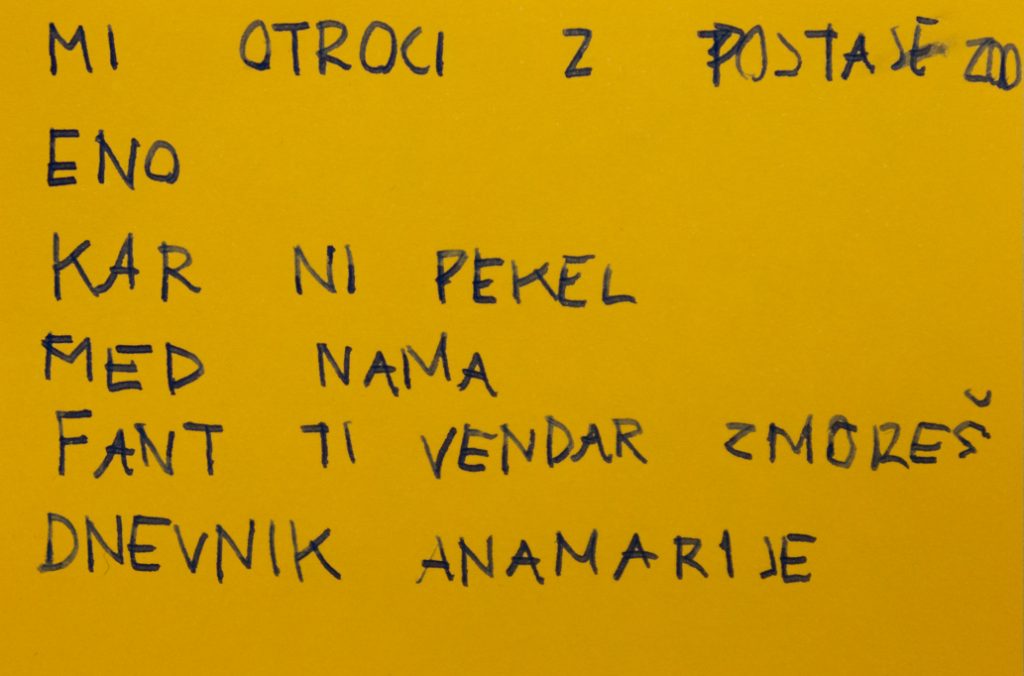 MI OTROCI Z POSTAJE ZOO
ENO
KAR NI PEKEL
MED NAMA
FANT TI VENDAR ZMOREŠ
DNEVNIK ANAMARIJE